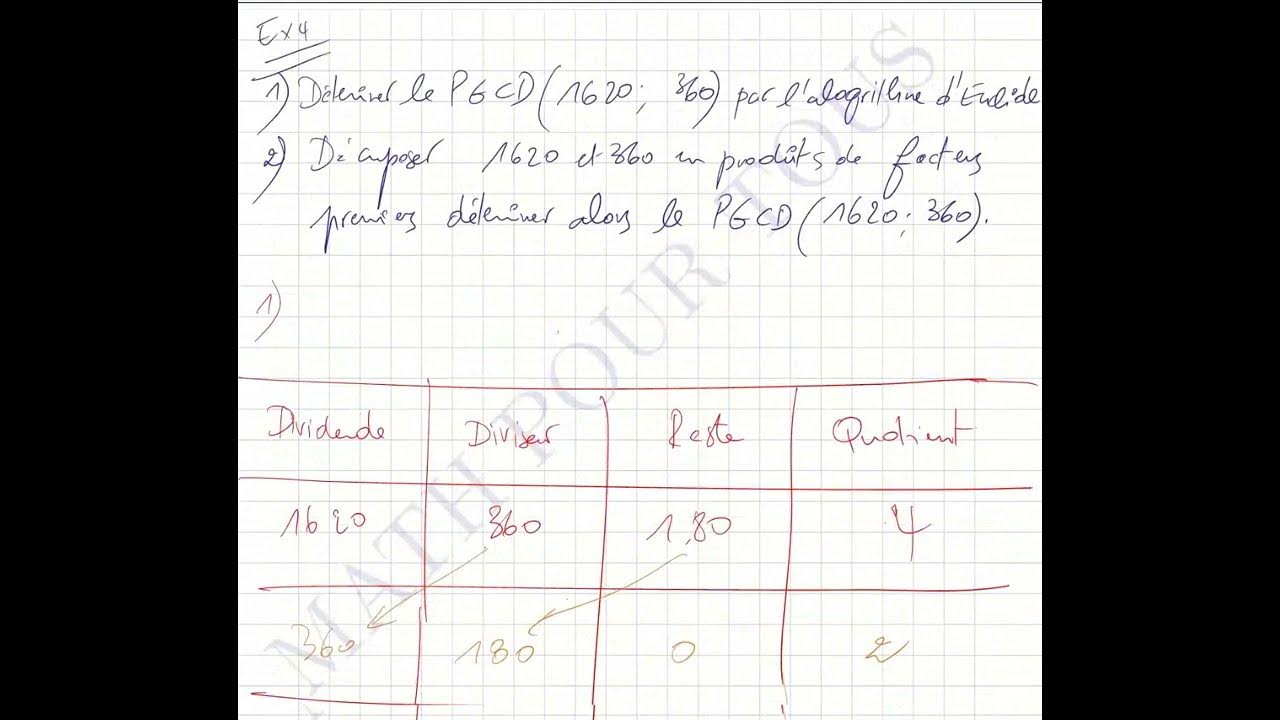 Ex 4
1) Déterminer le PGCD(1620; 360) par l'alogrithme d'Euclide
2) Décomposer 1620 et 360 en produits de facteurs
premiers déterminer alors le PGCD(1620; 360).
1)
Dividende Diviseur Reste Quotient
1620 360 180 4
360 180 0 2
MATH POUR TOUS